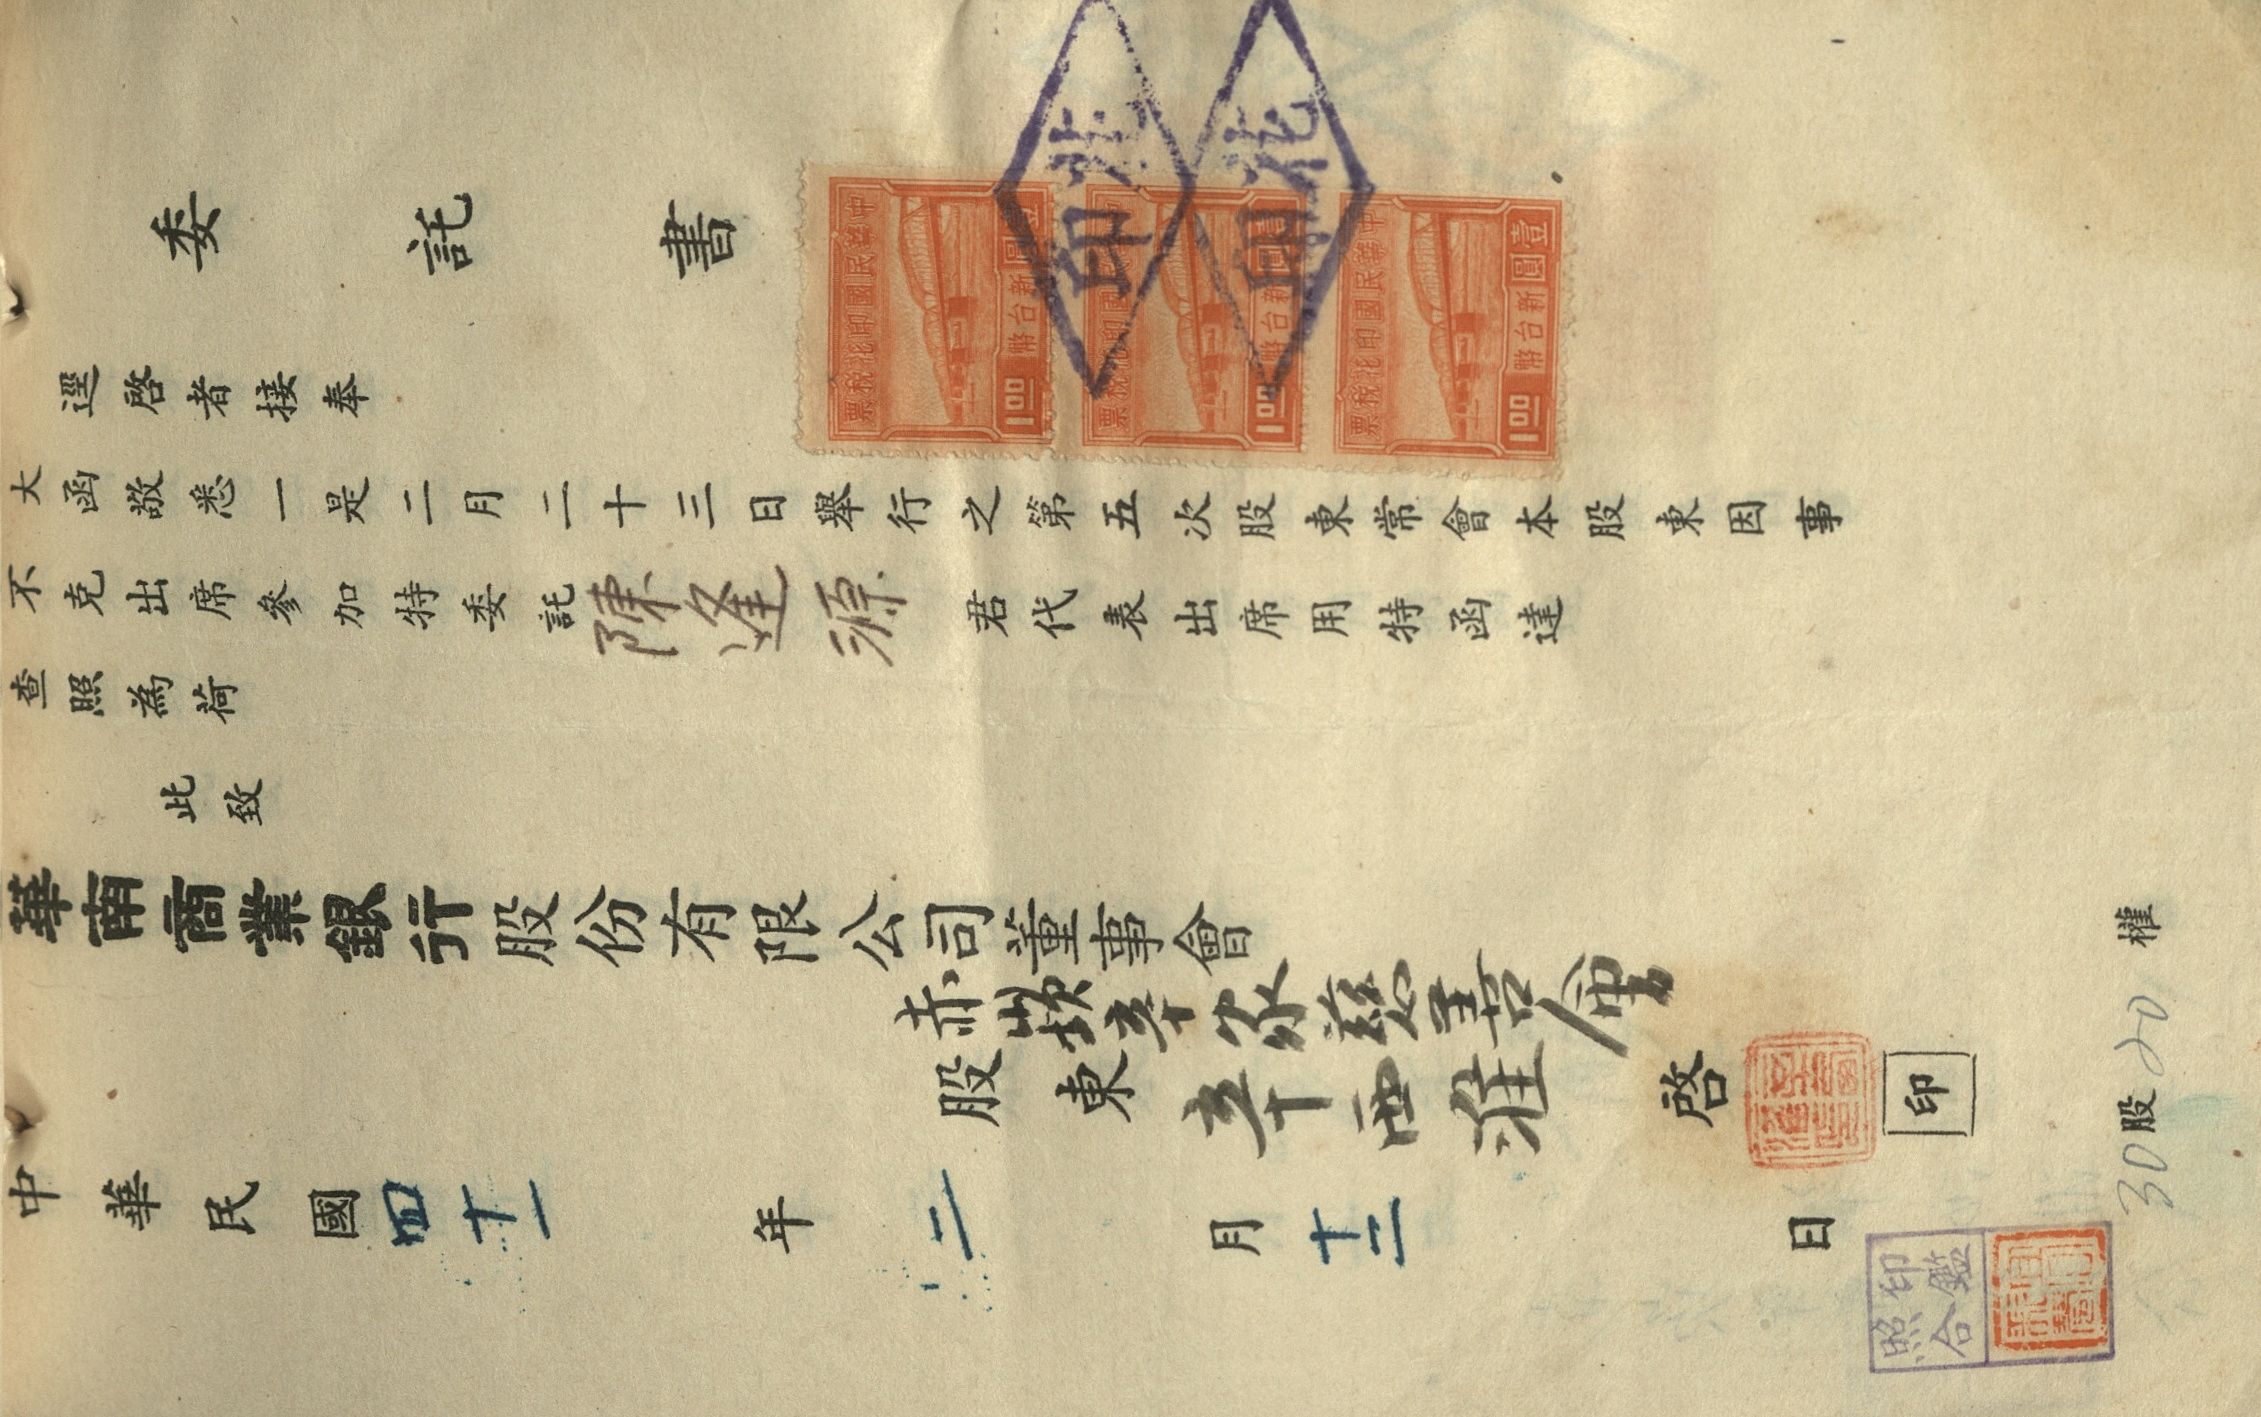 委託書
逕啓者接奉
大函敬悉一是二月二十三日舉行之第五次股東常會本股東因事
不克出席參加特委託陳逢源君代表出席用特函達
查照為荷
此致
華南商業銀行股份有限公司董事會
赤嵌辜家慈善會
股東辜西淮啓
印
中華民國四十一年二月十二日
30股20權
印鑑
照合
中華民國印花稅票
壹圓
新台幣
1.00
中華民國印花稅票
壹圓
新台幣
1.00
中華民國印花稅票
壹圓
新台幣
1.00
印花
印花